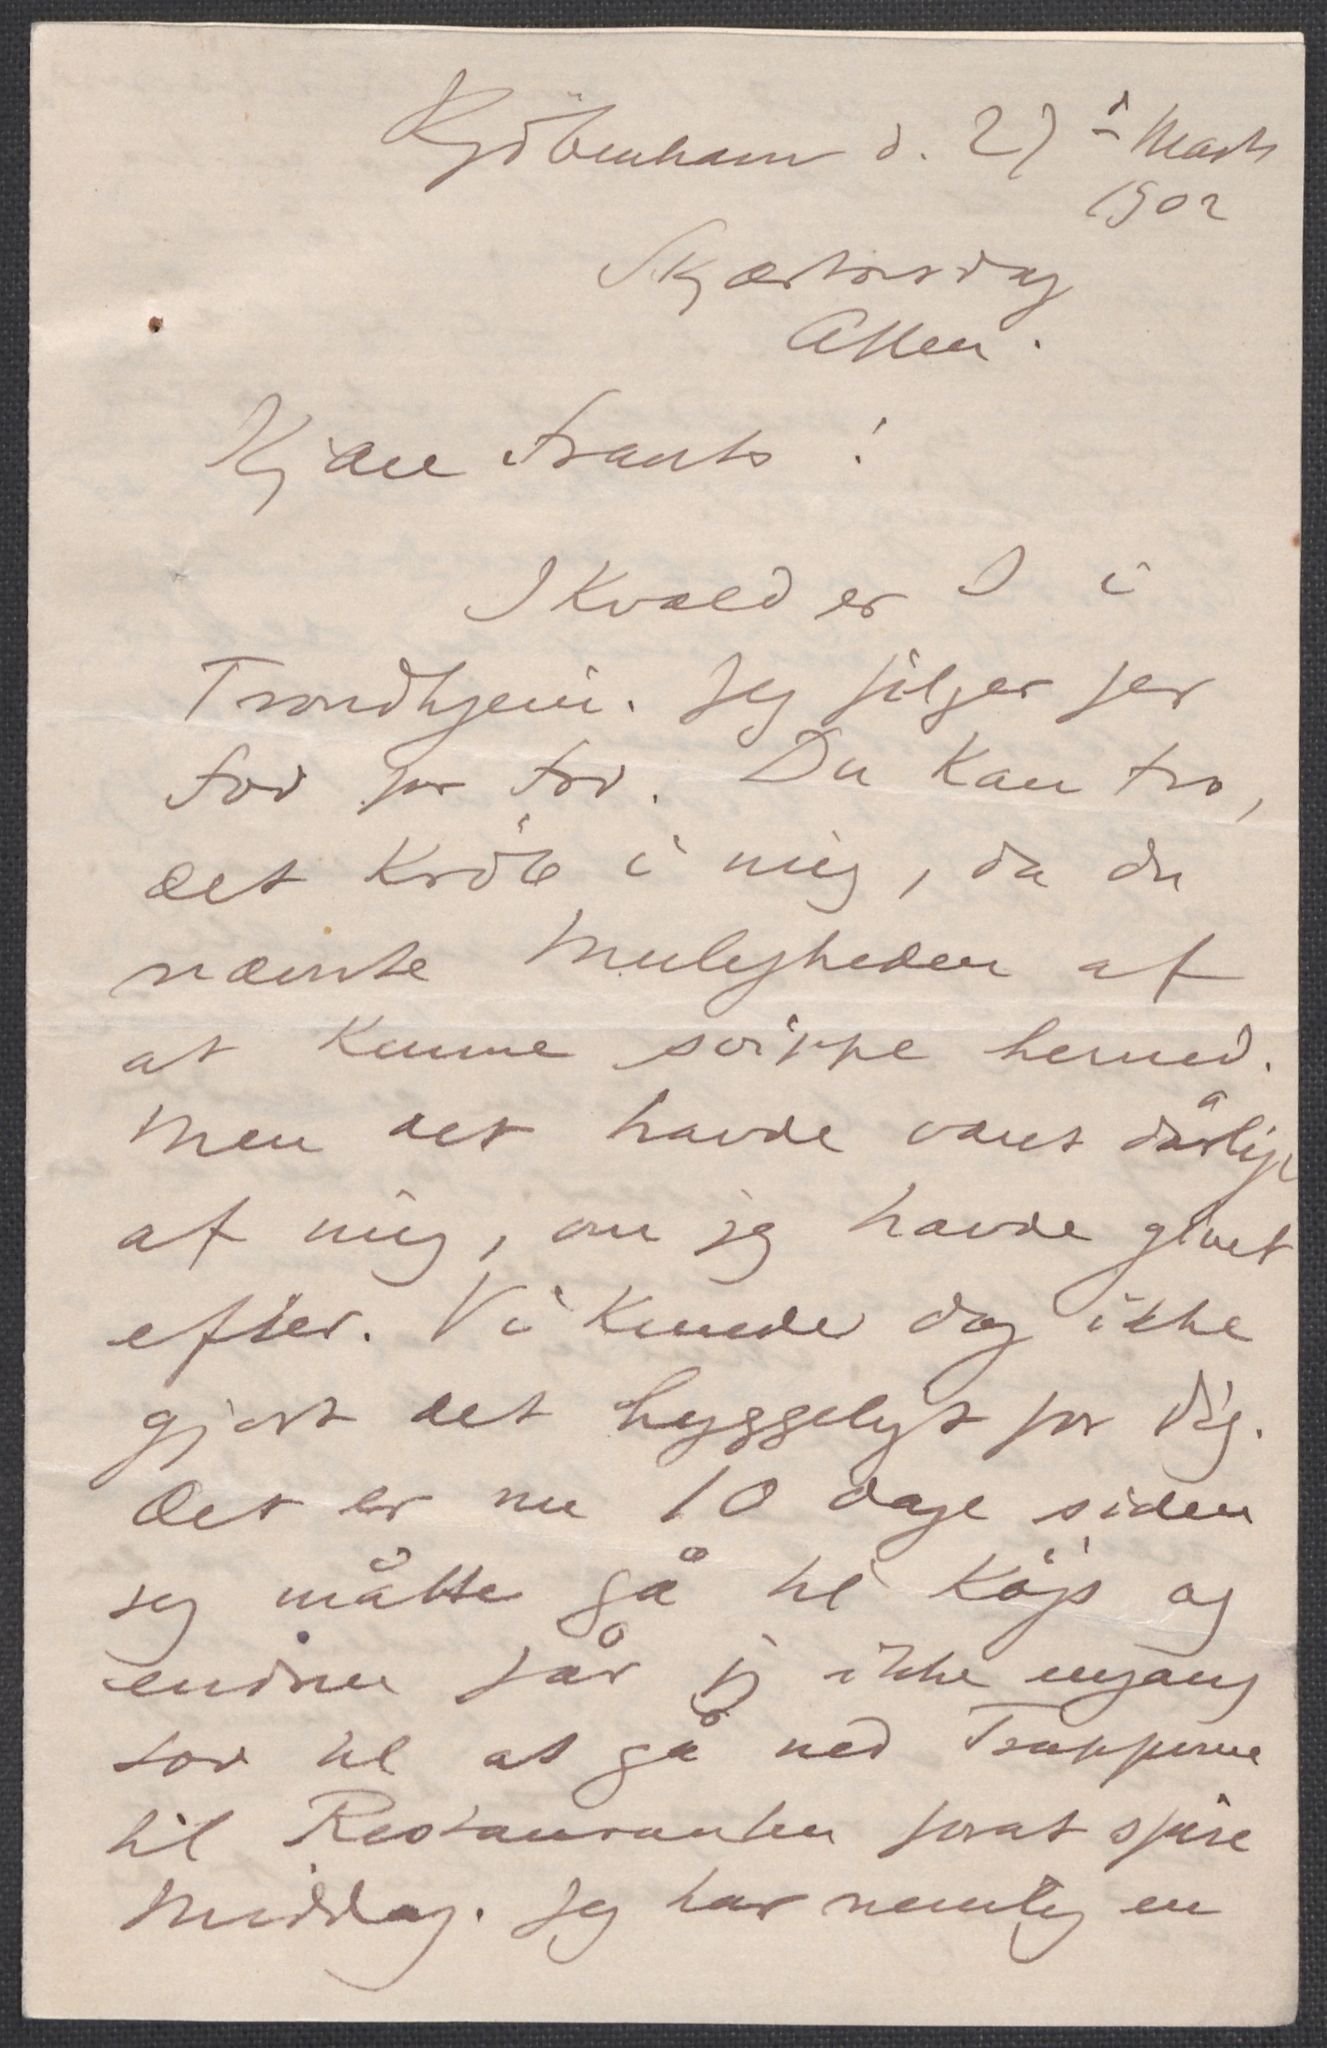 Kjöbenhavn d. 27de Marts
1902
Skjærtorsdag
Aften.
Kjære Frants!
I Kvæld er I i
Trondhjem. Jeg følger jer
Fod for Fod. Du kan tro,
det krøb i mig, da du
nævnte Muligheden af
at kunne svippe herned.
Men det havde været dårligt
af mig, om jeg havde givet
efter. Vi kunde dog ikke
gjort det hyggeligt for dig.
Det er nu 10 dage siden
jeg måtte gå til Køjs og
endnu får jeg ikke engang
lov til at gå ned Trapperne
til Restauranten forat spise
Middag. Jeg har nemlig en